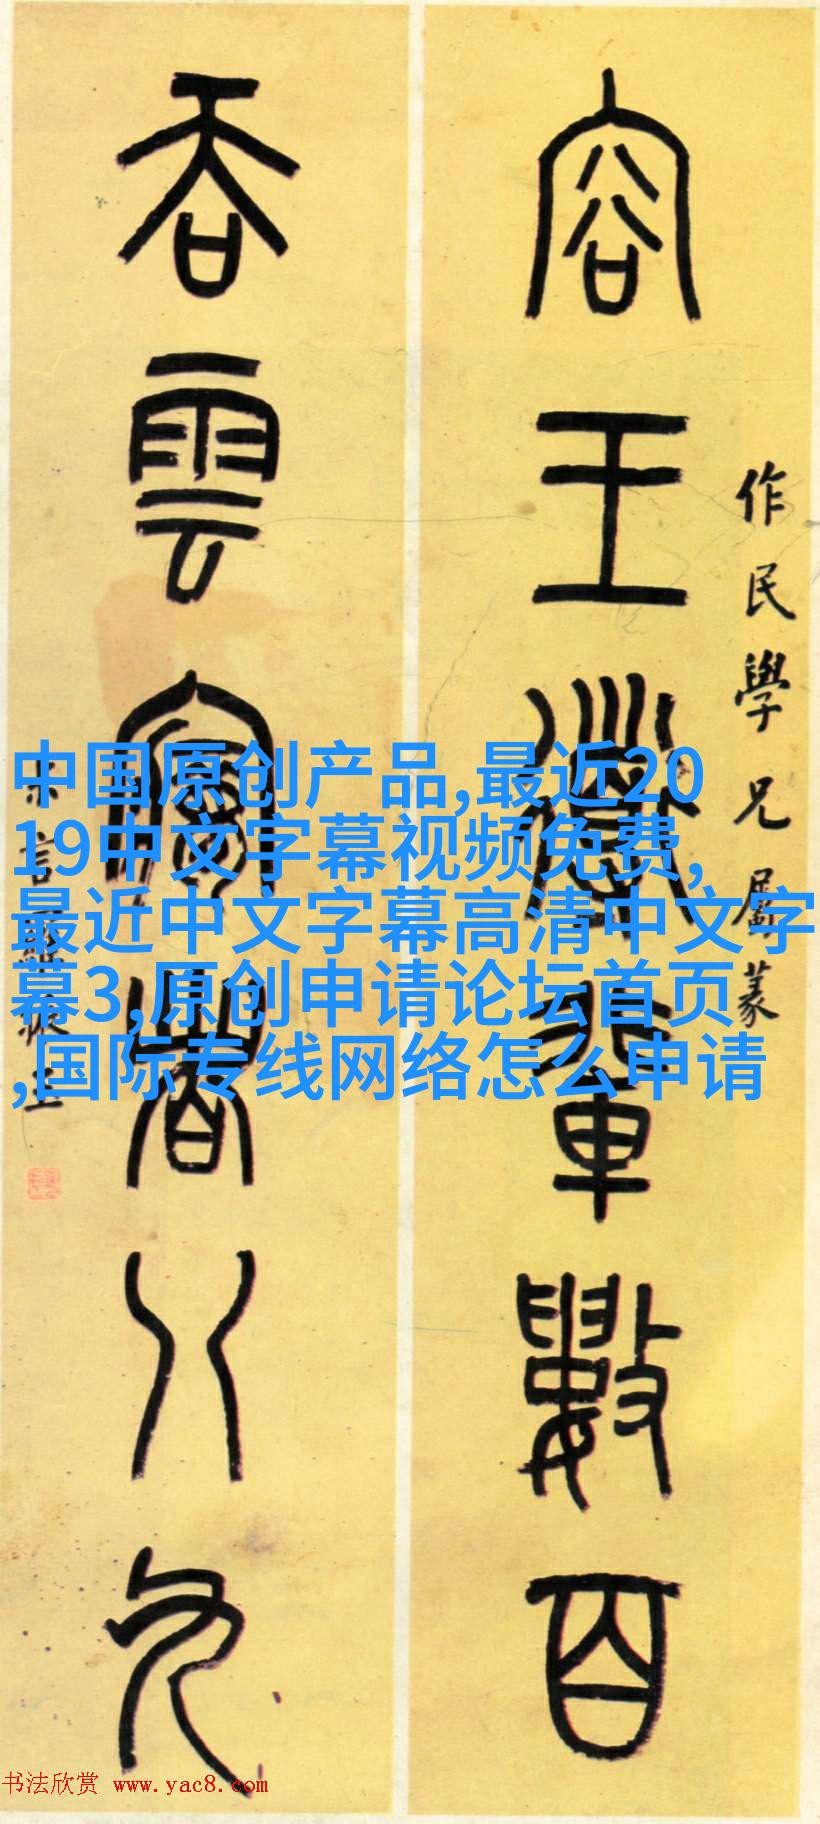 作民學兄屬篆
容王輩數百
吞雲夢者八九
中国原创产品,最近20
19中文字幕视频免费,
最近中文字幕高清中文字
幕3,原创申请论坛首页
,国际专线网络怎么申请
书法欣赏 www.yac8.com